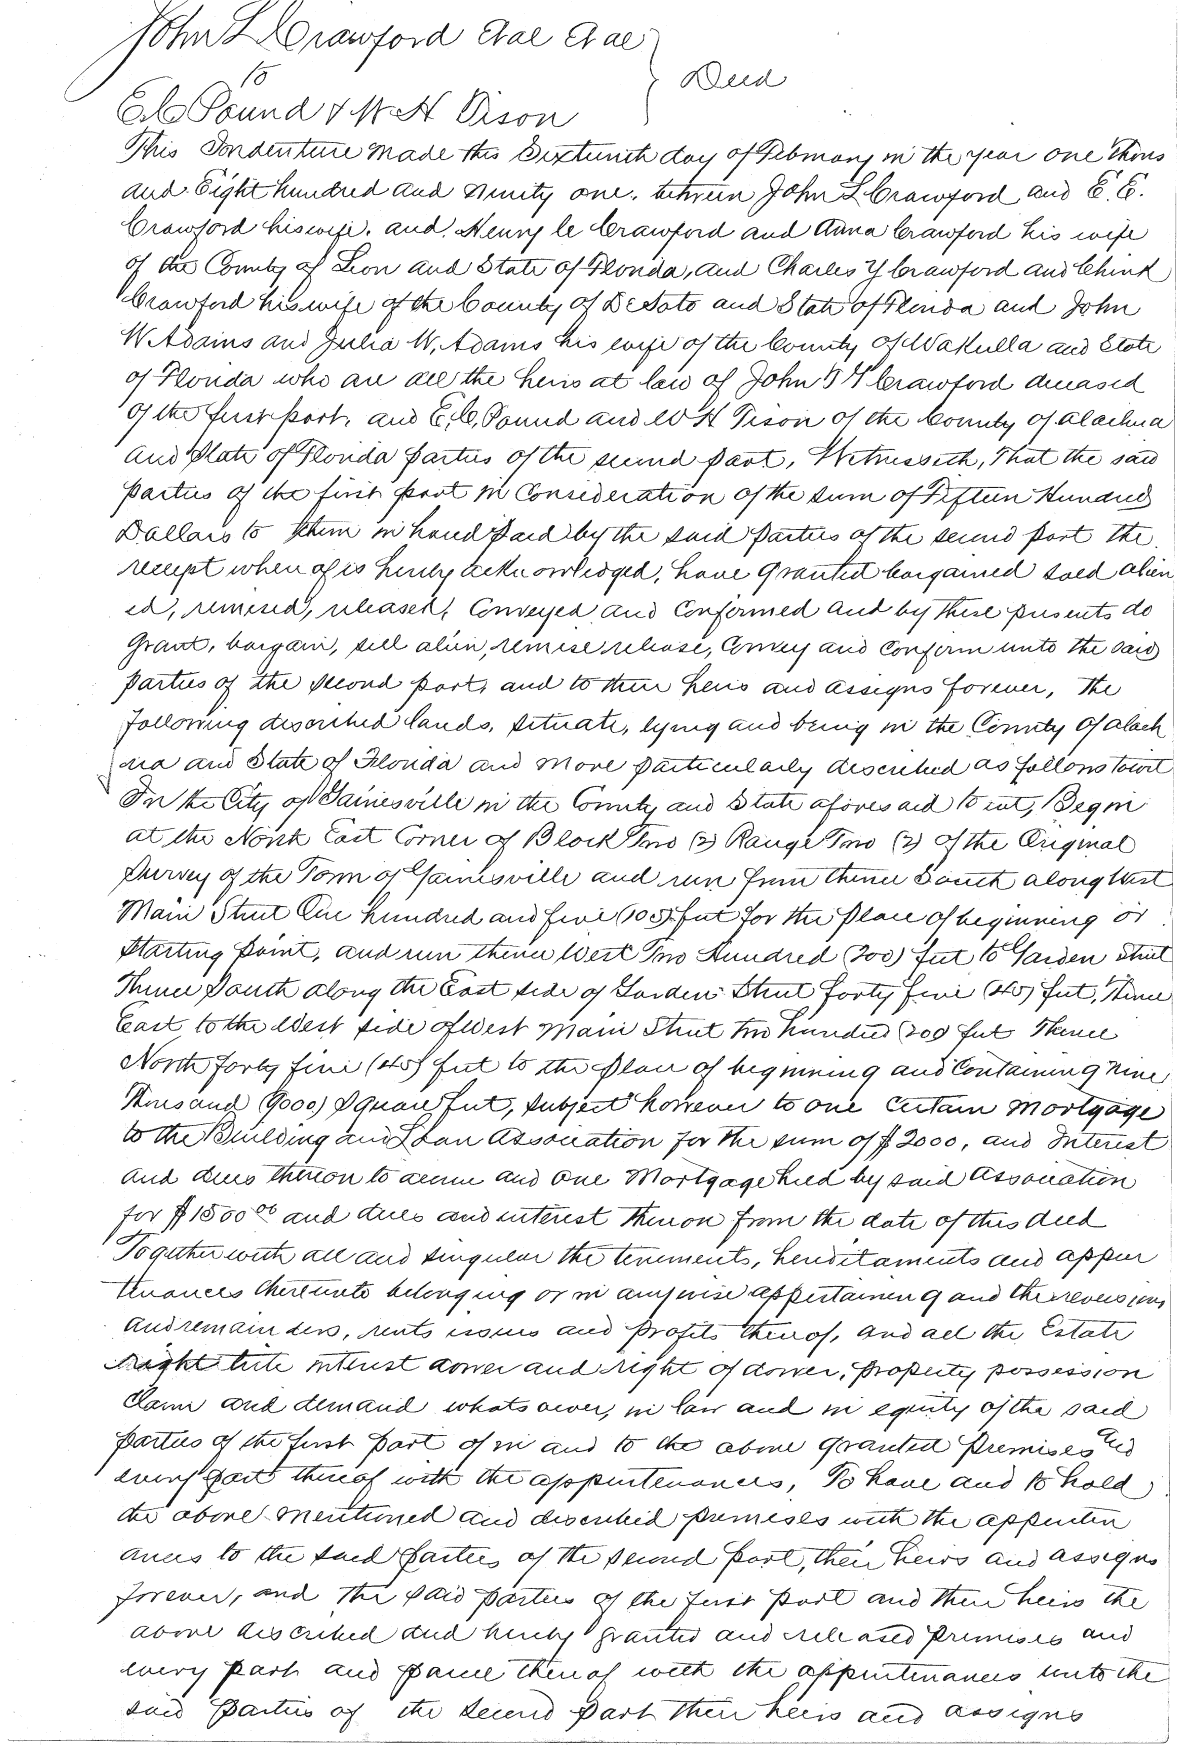 John L Crawford et al et al
to
Deed
E.C. Pound & W H Tison
This Indenture made this Sixteenth day of February in the year one Thous
and Eight hundred and ninety one. between John L Crawford and E. E.
Crawford his wife. and. Henry C Crawford and Anna Crawford his wife
of the County of Leon and State of Florida, and Charles Y Crawford and
Crawford his wife of the County of DeSoto and State of Florida and John
W. Adams and Julia W. Adams his wife of the County of Wakulla and State
of Florida who are all the heirs at law of John T Y Crawford deceased
of the first part, and E.C. Pound and W H Tison of the County of Alachua
and State of Florida parties of the second part, Witnesseth, That the said
parties of the first part in Consideration of the sum of Fifteen Hundred
Dollars to them in hand paid by the said parties of the second part the
receipt when of is hereby acknowledged, have granted bargained sold alien
ed, remised, released, Conveyed and Confirmed and by these presents do
Grant, bargain, sell alien, remise release, Convey and Confirm unto the said
parties of the second part, and to their heirs and assigns forever, The
following described lands, situate, lying and being in the County of Alach
ua and State of Florida and more particularly described as follows towit
In the City of Gainesville in the County and State aforesaid to wit, Begin
at the North East Corner of Block Two (2) Range Two (2) of the Original
Survey of the Town of Gainesville and run from thence South along West
Main Street One hundred and five (105) feet for the place of beginning or
Starting point, and run thence West Two Hundred (200) feet to Garden Street
Thence South along the East side of Garden Street forty five (45) feet, Thence
East to the West side of West Main Street two hundred (200) feet Thence
North forty five (45) feet to the place of beginning and Containing Nine
Thousand (9000) Square feet, subject however to one Certain Mortgage
to the Building and Loan Association for the sum of $2000, and Interest
and dues thereon to accrue and one Mortgage held by said Association
for $1500 00 and dues and interest thereon from the date of this deed
Together with all and singular the tenements, hereditaments and appur
tenances thereunto belonging or in anywise appertaining and the reversions
and remainders, rents issues and profits thereof, and all the Estate
right title interest dower and right of dower, property possession
Claim and demand whatsoever, in law and in equity of the said
parties of the first part of in and to the above granted premises and
every part thereof with the appurtenances, To have and to hold
the above mentioned and described premises with the appurten
ances to the said parties of the second part, their heirs and assigns
forever, and the said parties of the first part and their heirs the
above described and hereby granted and released premises and
every part and parcel thereof with the appurtenances unto the
said parties of the second part their heirs and assigns